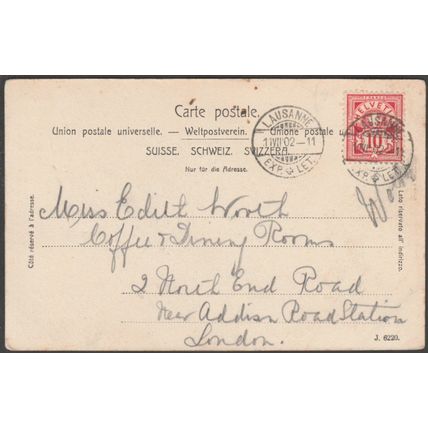 Carte postale.
Union postale universelle. — Weltpostverein. — Unione postale u
SUISSE. SCHWEIZ. SVIZZERA.
Nur für die Adresse.
LAUSANNE
1.VII.02.-11
EXP. LET.
HELVETIA
10
LAUSANNE
EXP. LET.
Côté réservé à l'adresse.
Lato riservato all' indirizzo.
Miss Edith Worth
Coffee & Dining Rooms
2 North End Road
Near Addison Road Station
London.
J. 6220.